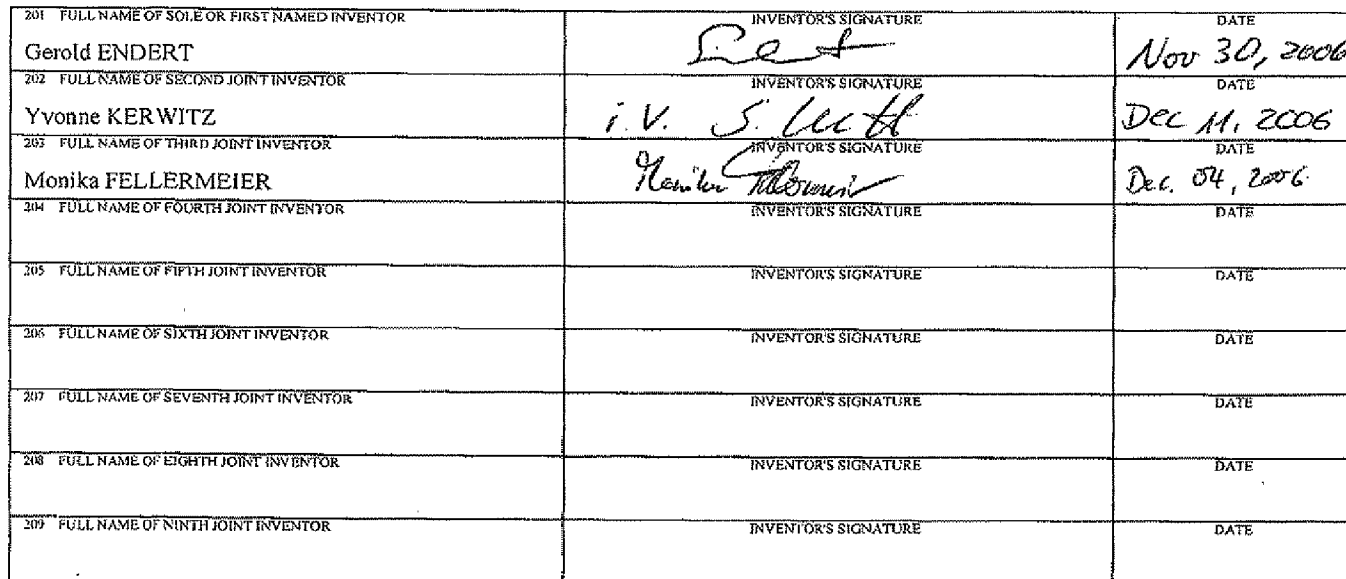 201 FULL NAME OF SOLE OR FIRST NAMED INVENTOR INVENTOR'S SIGNATURE DATE
Gerold ENDERT Nov 30, 2006
202 FULL NAME OF SECOND JOINT INVENTOR INVENTOR'S SIGNATURE DATE
Yvonne KERWITZ i.V. S. Dec 11, 2006
203 FULL NAME OF THIRD JOINT INVENTOR INVENTOR'S SIGNATURE DATE
Monika FELLERMEIER Monika Dec. 04, 2006
204 FULL NAME OF FOURTH JOINT INVENTOR INVENTOR'S SIGNATURE DATE
205 FULL NAME OF FIFTH JOINT INVENTOR INVENTOR'S SIGNATURE DATE
206 FULL NAME OF SIXTH JOINT INVENTOR INVENTOR'S SIGNATURE DATE
207 FULL NAME OF SEVENTH JOINT INVENTOR INVENTOR'S SIGNATURE DATE
208 FULL NAME OF EIGHTH JOINT INVENTOR INVENTOR'S SIGNATURE DATE
209 FULL NAME OF NINTH JOINT INVENTOR INVENTOR'S SIGNATURE DATE